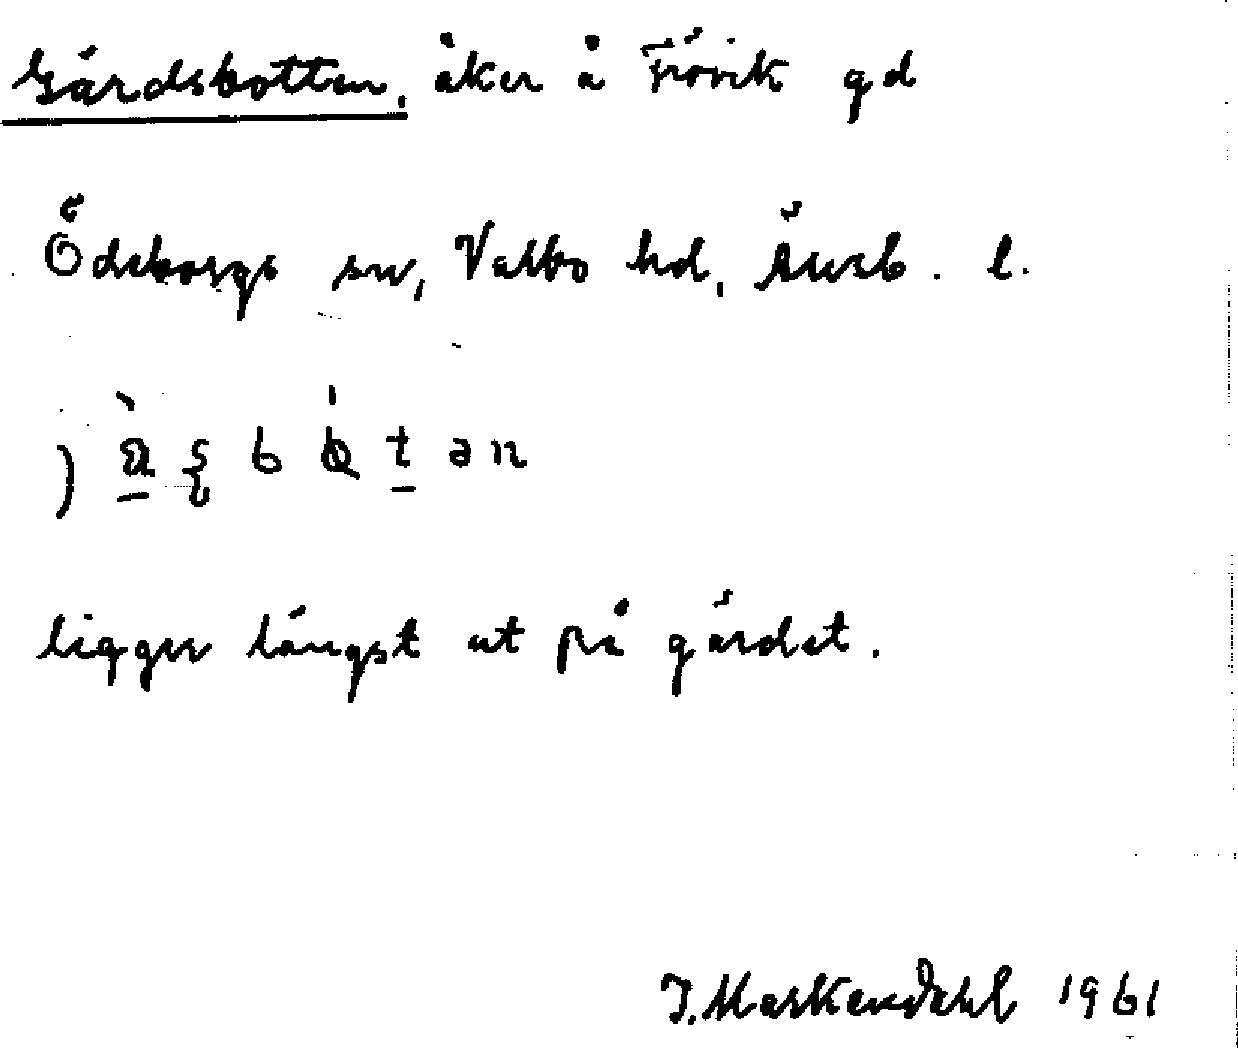 Gärdsbotten, åker å Frövik gd
Ödeborgs sn, Valbo hd, Älvsb. l.
ligger längst ut på gärdet.
J. Markendahl 1961